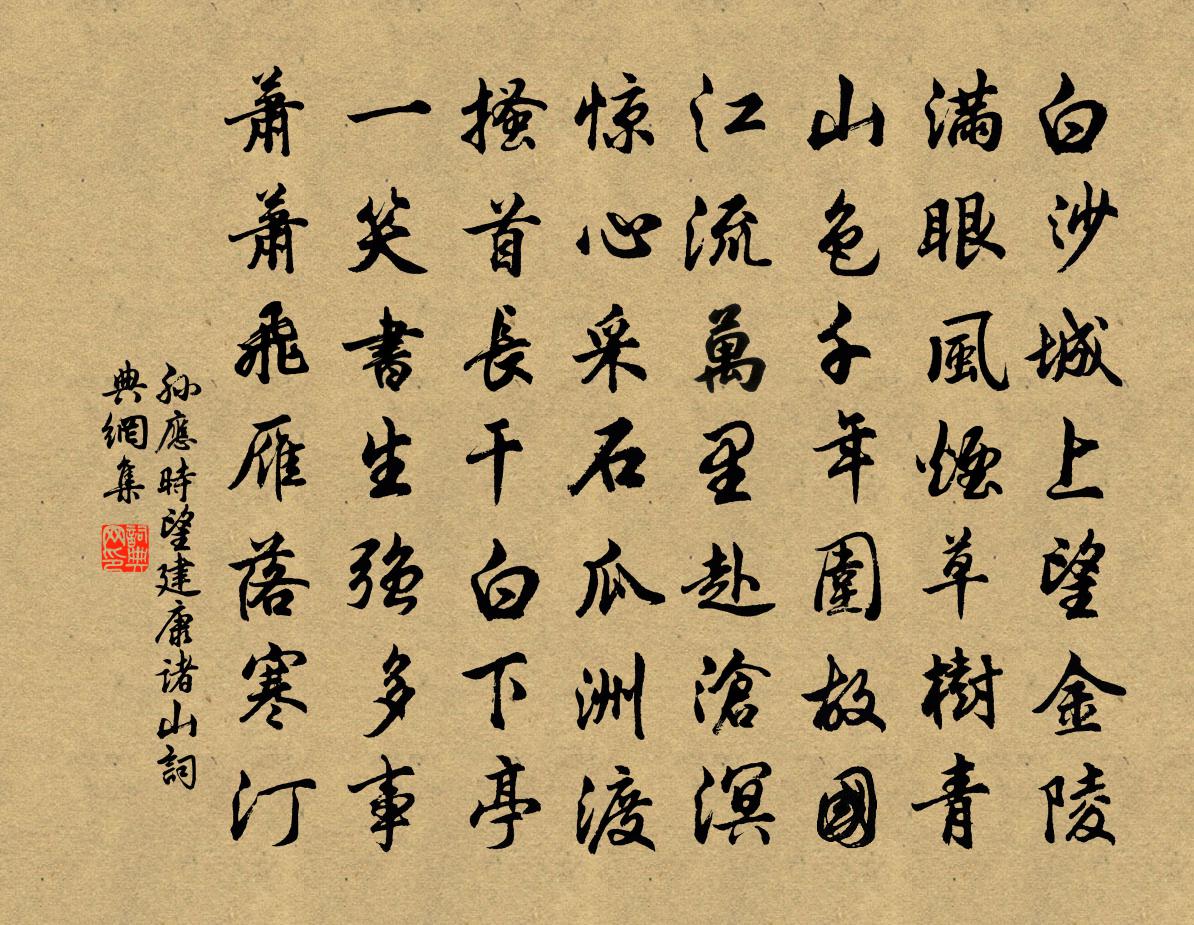 白沙城上望金陵
满眼風煙草樹青
山色千年圍故國
江流萬里赴滄溟
惊心采石瓜洲渡
搔首長干白下亭
一笑書生强多事
蕭蕭飛雁落寒汀
孙應時望建康诸山詞
典網集
詞典网印